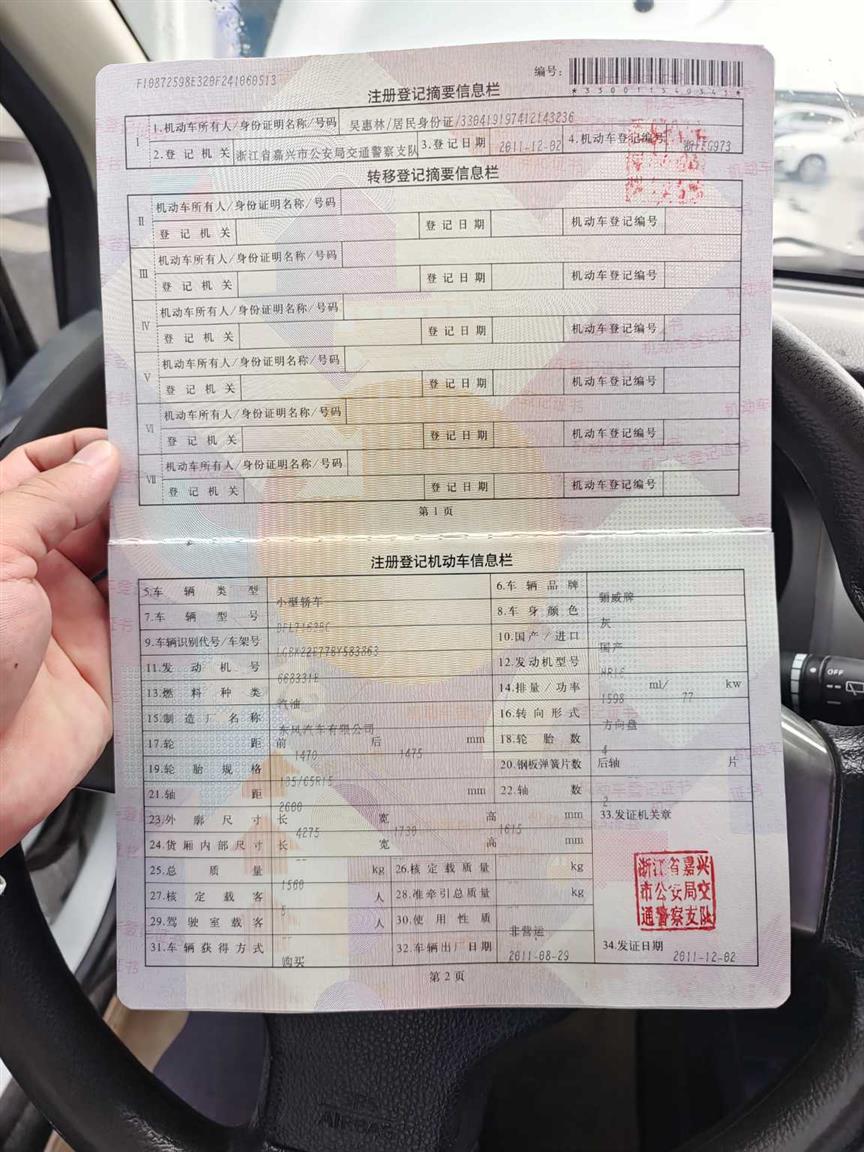 F10872598E329F241060513
编号:
*330011340343*
注册登记摘要信息栏
I 1.机动车所有人/身份证明名称/号码 吴惠林/居民身份证/330419197412143236
2.登记机关 浙江省嘉兴市公安局交通警察支队 3.登记日期 2011-12-02 4.机动车登记编号
转移登记摘要信息栏
II 机动车所有人/身份证明名称/号码
登记机关 登记日期 机动车登记编号
III 机动车所有人/身份证明名称/号码
登记机关 登记日期 机动车登记编号
IV 机动车所有人/身份证明名称/号码
登记机关 登记日期 机动车登记编号
V 机动车所有人/身份证明名称/号码
登记机关 登记日期 机动车登记编号
VI 机动车所有人/身份证明名称/号码
登记机关 登记日期 机动车登记编号
VII 机动车所有人/身份证明名称/号码
登记机关 登记日期 机动车登记编号
第1页
注册登记机动车信息栏
5.车辆类型 小型轿车 6.车辆品牌 骊威牌
7.车辆型号 8.车身颜色 灰
9.车辆识别代号/车架号 10.国产/进口 国产
11.发动机号 668331E 12.发动机型号 HR16
13.燃料种类 汽油 14.排量/功率 1598 ml/ 77 kw
15.制造厂名称 东风汽车有限公司 16.转向形式 方向盘
17.轮距 前 1470 后 1475 mm 18.轮胎数 4
19.轮胎规格 185/65R15 20.钢板弹簧片数 后轴 -- 片
21.轴距 2600 mm 22.轴数 2
23.外廓尺寸 长 4275 宽 1730 高 1615 mm 33.发证机关章
24.货厢内部尺寸 长 -- 宽 高 mm
25.总质量 1560 kg 26.核定载质量 -- kg
27.核定载客 5 人 28.准牵引总质量 -- kg
29.驾驶室载客 -- 人 30.使用性质 非营运
31.车辆获得方式 购买 32.车辆出厂日期 2011-08-29 34.发证日期 2011-12-02
浙江省嘉兴
市公安局交
通警察支队
第2页
OFF
AIRBAG